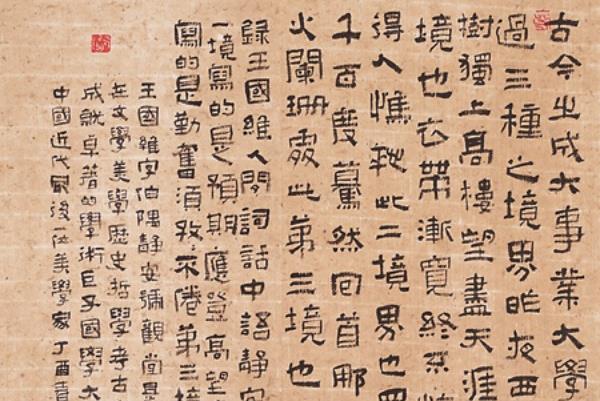 古今之成大事業大學
過三種之境界昨夜西
樹獨上高樓望盡天涯
境也衣帶漸寬終不
得人憔悴此二境界也
千百度驀然回首那
火闌珊處此第三境也
錄王國維人間詞話中語靜安
一境寫的是預期應登高望
寫的是勤奮須孜不倦第三境
王國維字伯隅靜安號觀堂是
在文學美學歷史哲學考古
成就卓著的學術巨子國學大
中國近代最後一位美學家丁酉